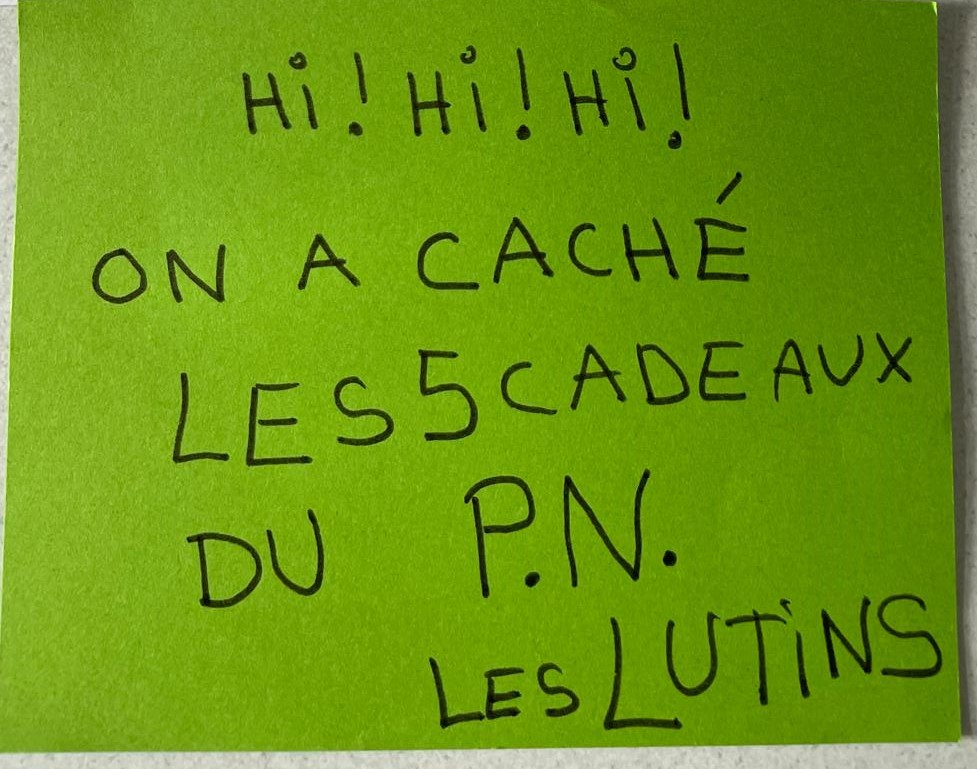 Hi! Hi! Hi!
ON A CACHÉ
LES 5 CADEAUX
DU P.N.
LES LUTiNS